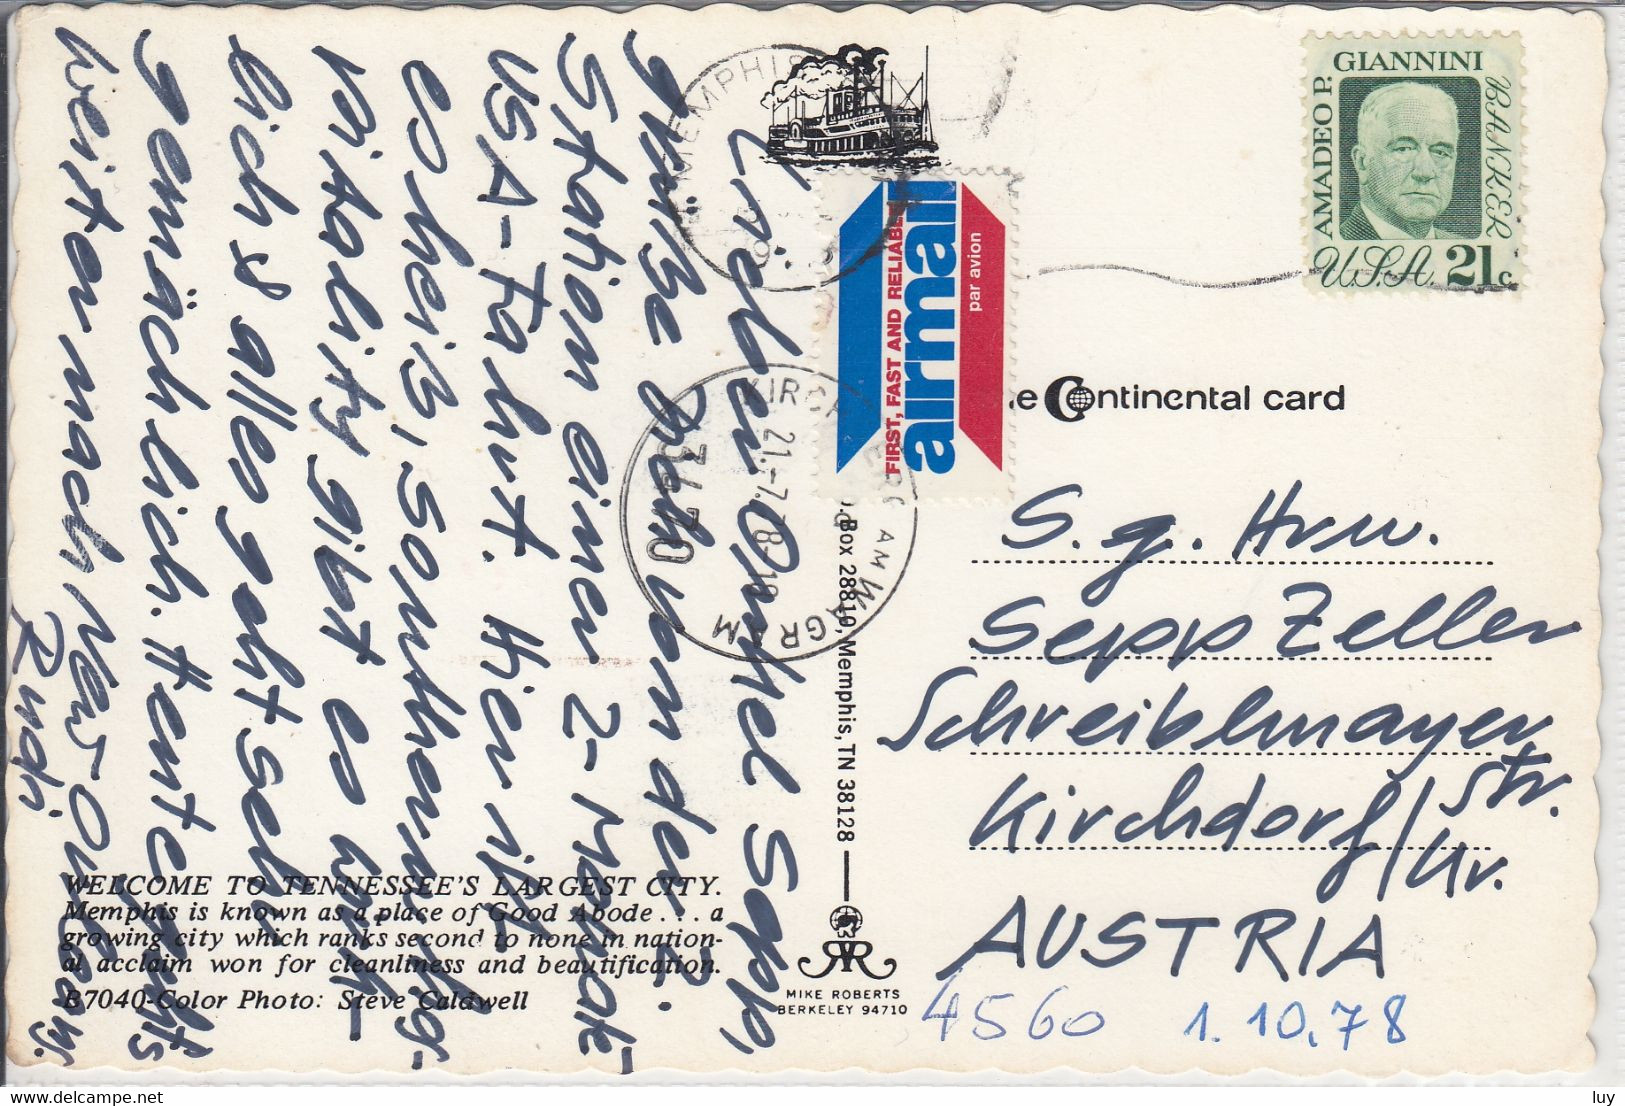 Lieber Onkel Sepp,
von der
Station einer 2-Monats-
USA-Fahrt. Hier ist
es heiß, southern hos-
pitality gibt es wirk-
lich & alles geht sehr
gemächlich. Heute
weiter nach New Orleans.
Rudi
WELCOME TO TENNESSEE'S LARGEST CITY.
Memphis is known as a place of Good Abode . . . a
growing city which ranks second to none in nation-
al acclaim won for cleanliness and beautification.
B7040-Color Photo: Steve Caldwell
MEMPHIS
KIRCH
21.-7.78-18
3470
AM WAGRAM
Box 28810, Memphis, TN 38128
MIKE ROBERTS
BERKELEY 94710
FIRST, FAST AND RELIABLE
airmail
par avion
AMADEO P. GIANNINI
BANKER
U.S.A. 21c
Continental card
S. g. Hrn.
Sepp Zeller
Schreiblmayer
Str.
Kirchdorf/
Kr.
AUSTRIA
4560 1.10.78
luy